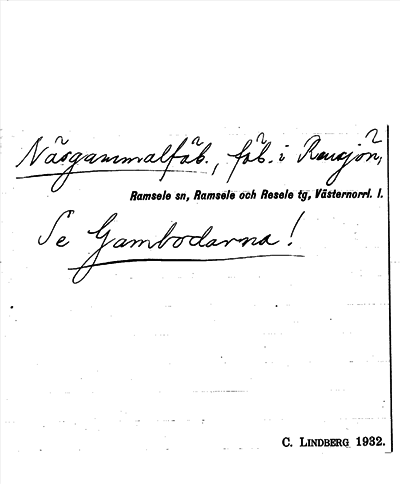 Näsgammalfäb., fäb. i Rensjön,
Ramsele sn, Ramsele och Resele tg, Västernorrl. l.
Se Gambodarna!
C. LINDBERG 1932.